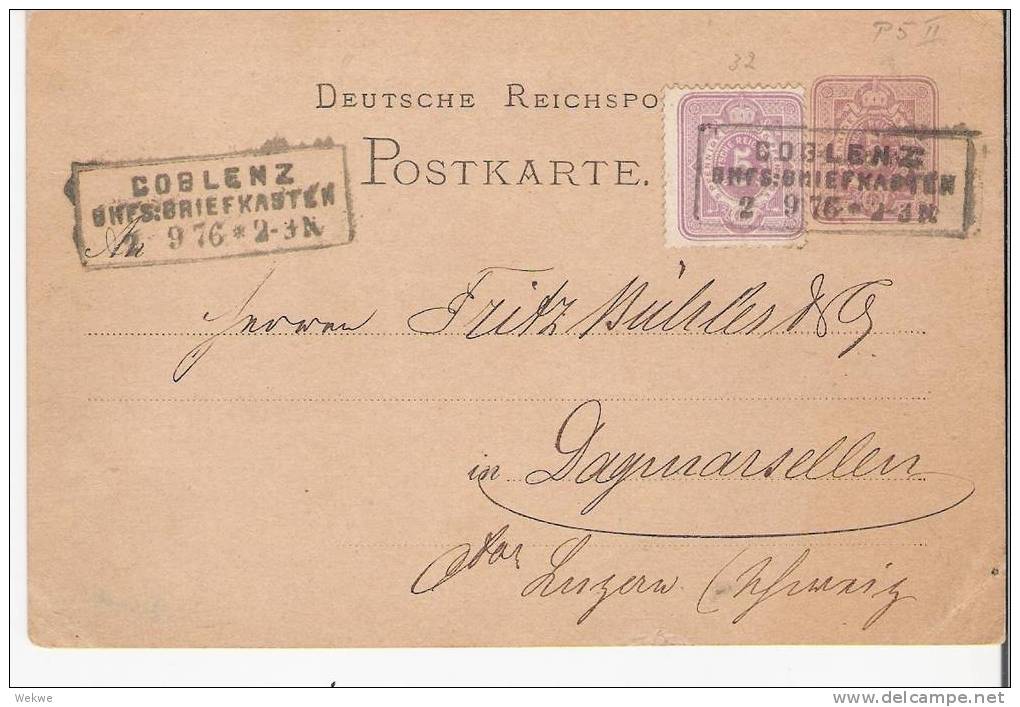 P5 II
32
DEUTSCHE REICHSPO
POSTKARTE.
COBLENZ
BHFS:BRIEFKASTEN
2 9 76 * 2-3 N
5
COBLENZ
BHFS:BRIEFKASTEN
2 9 76 * 2-3 N
An
Herren Fritz Bühler & Cº
in Dagmarsellen
Luzern Schweiz
Wekwe
www.delcampe.net